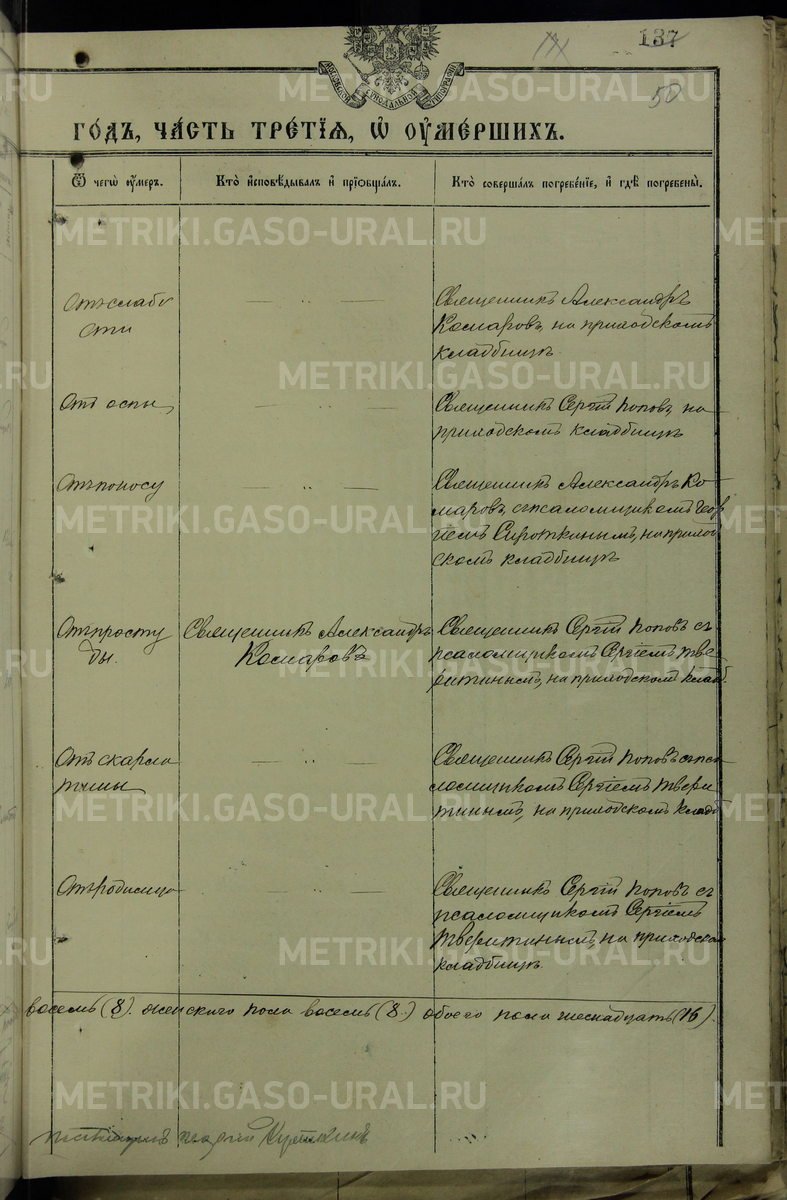 137
50
МОСКОВСКОЙ СѴНОДАЛЬНОЙ ТИПОГРАФІИ
ГО́ДЪ, ЧА́СТЬ ТРЕ́ТІѦ, Ѡ҆ ОУ҆МЕ́РШИХЪ.
Ѿ чегѡ̀ оу҆́меръ.
Кто̀ и҆сповѣ́дывалъ и҆ прїѡбща́лъ.
Кто̀ соверша́лъ погребе́нїе, и҆ гдѣ̀ погребены̀.
Отъ слабо
сти
Священникъ Александръ
Комаровъ, на приходскомъ
кладбищѣ
Отъ оспы
Священникъ Сергій Поповъ на
приходскомъ кладбищѣ
Отъ поносу
Священникъ Александръ Ко-
маровъ, съ псаломщикомъ Геор
гіемъ Сироткинымъ, на приход
скомъ кладбищѣ
Отъ просту
ды.
Священникъ Александръ
Комаровъ
Священникъ Сергій Поповъ съ
псаломщикомъ Сергіемъ Тве-
ритинымъ, на приходскомъ кладб.
Отъ скарла
тины
Священникъ Сергій Поповъ съ пса
ломщикомъ Сергіемъ Твери
тинымъ, на приходскомъ кладб
Отъ родимца
Священникъ Сергій Поповъ съ
псаломщикомъ Сергіемъ
Тверитинымъ, на приходском
кладбищѣ.
восемь (8). женскаго пола восемь (8.) обоего пола шеснадцать (16).
METRIKI.GASO-URAL.RU